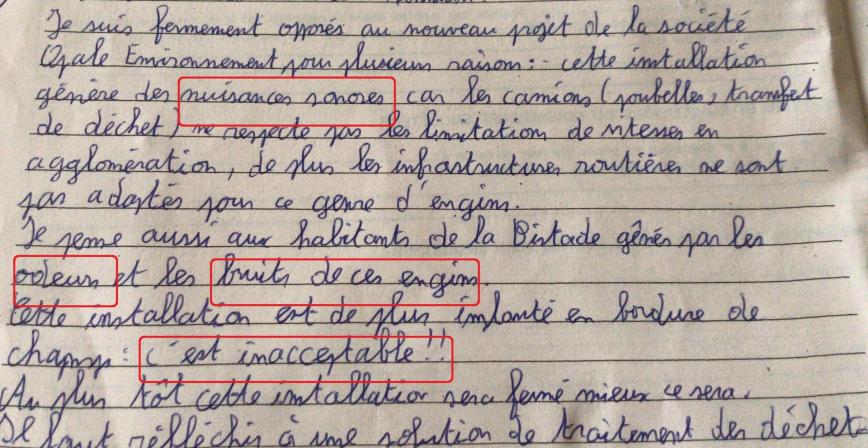 Je suis fermement opposés au nouveau projet de la société
Opale Environnement pour plusieurs raison : - cette installation
génère des nuisances sonores car les camions (poubelles, transfert
de déchet) ne respecte pas les limitation de vitesses en
agglomération, de plus les infrastructures routières ne sont
pas adaptés pour ce genre d'engins.
Je pense aussi aux habitants de la Bistade gênés par les
odeurs et les bruits de ces engins.
Cette installation est de plus implanté en bordure de
champs : c'est inacceptable !!
Au plus tôt cette installation sera fermé mieux ce sera.
Il faut réfléchir à une solution de traitement des déchet